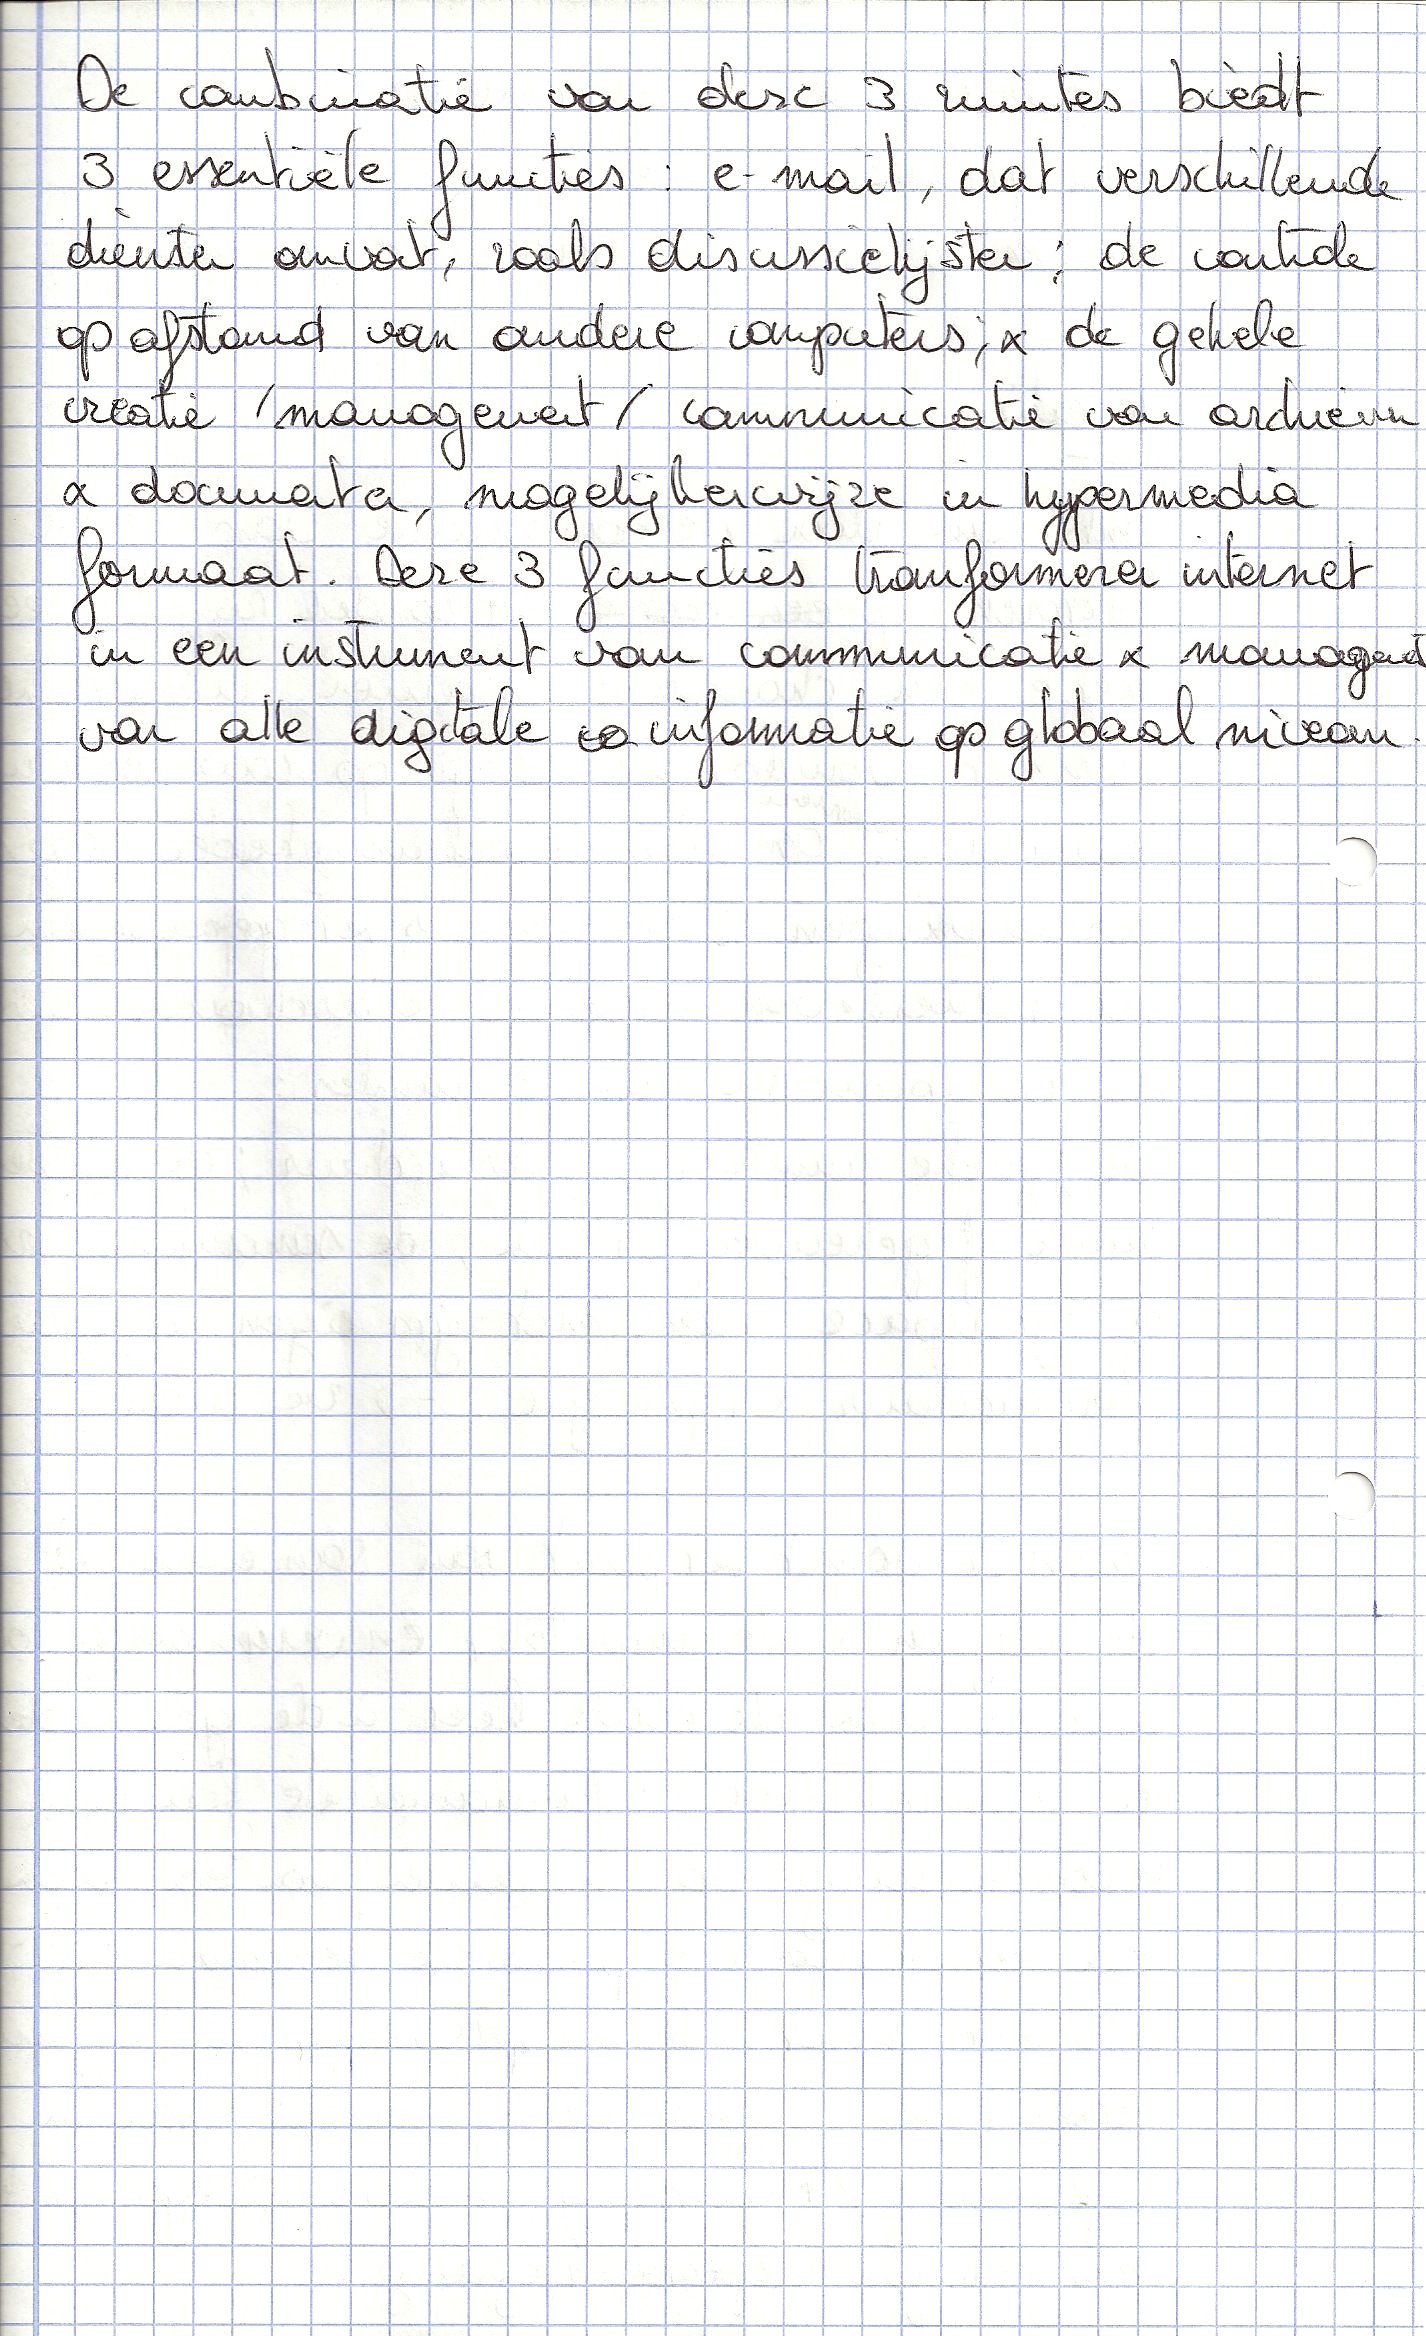 De combinatie van deze 3 ruimtes biedt
3 essentiële functies : e-mail, dat verschillende
diensten omvat, zoals discussielijsten ; de controle
op afstand van andere computers ; & de gehele
creatie / management / communicatie van archieven
& documenten, mogelijkerwijze in hypermedia
formaat. Deze 3 functies transformeren internet
in een instrument van communicatie & management
van alle digitale informatie op globaal niveau.